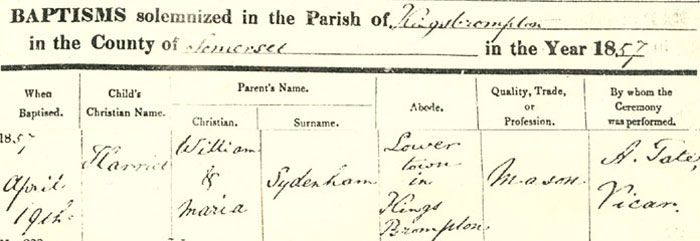 BAPTISMS solemnized in the Parish of Kingsbrompton
in the County of Somerset in the Year 1857
When Baptised.
Child's Christian Name.
Parent's Name.
Christian.
Surname.
Abode.
Quality, Trade, or Profession.
By whom the Ceremony was performed.
1857
April
19th
Harriet
William
&
Maria
Sydenham
Lower
town
in
Kings
Brompton
Mason
A. Tate,
Vicar.